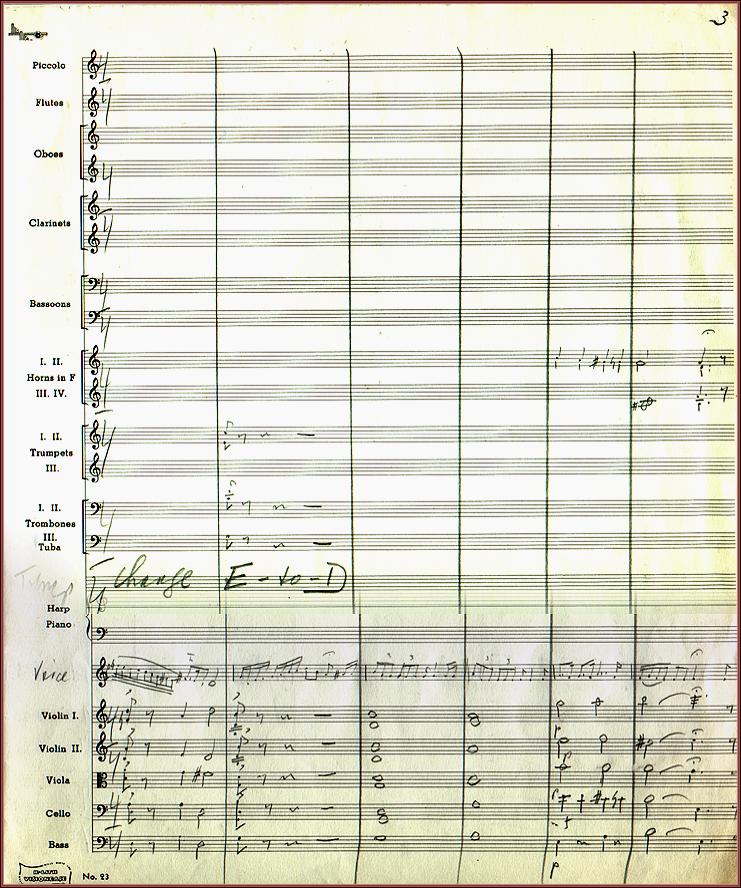 3
Piccolo
Flutes
Oboes
Clarinets
Bassoons
I. II.
Horns in F
III. IV.
I. II.
Trumpets
III.
I. II.
Trombones
III.
Tuba
Change E - to - D
Harp
Piano
Voice
Violin I.
Violin II.
Viola
Cello
Bass
No. 23